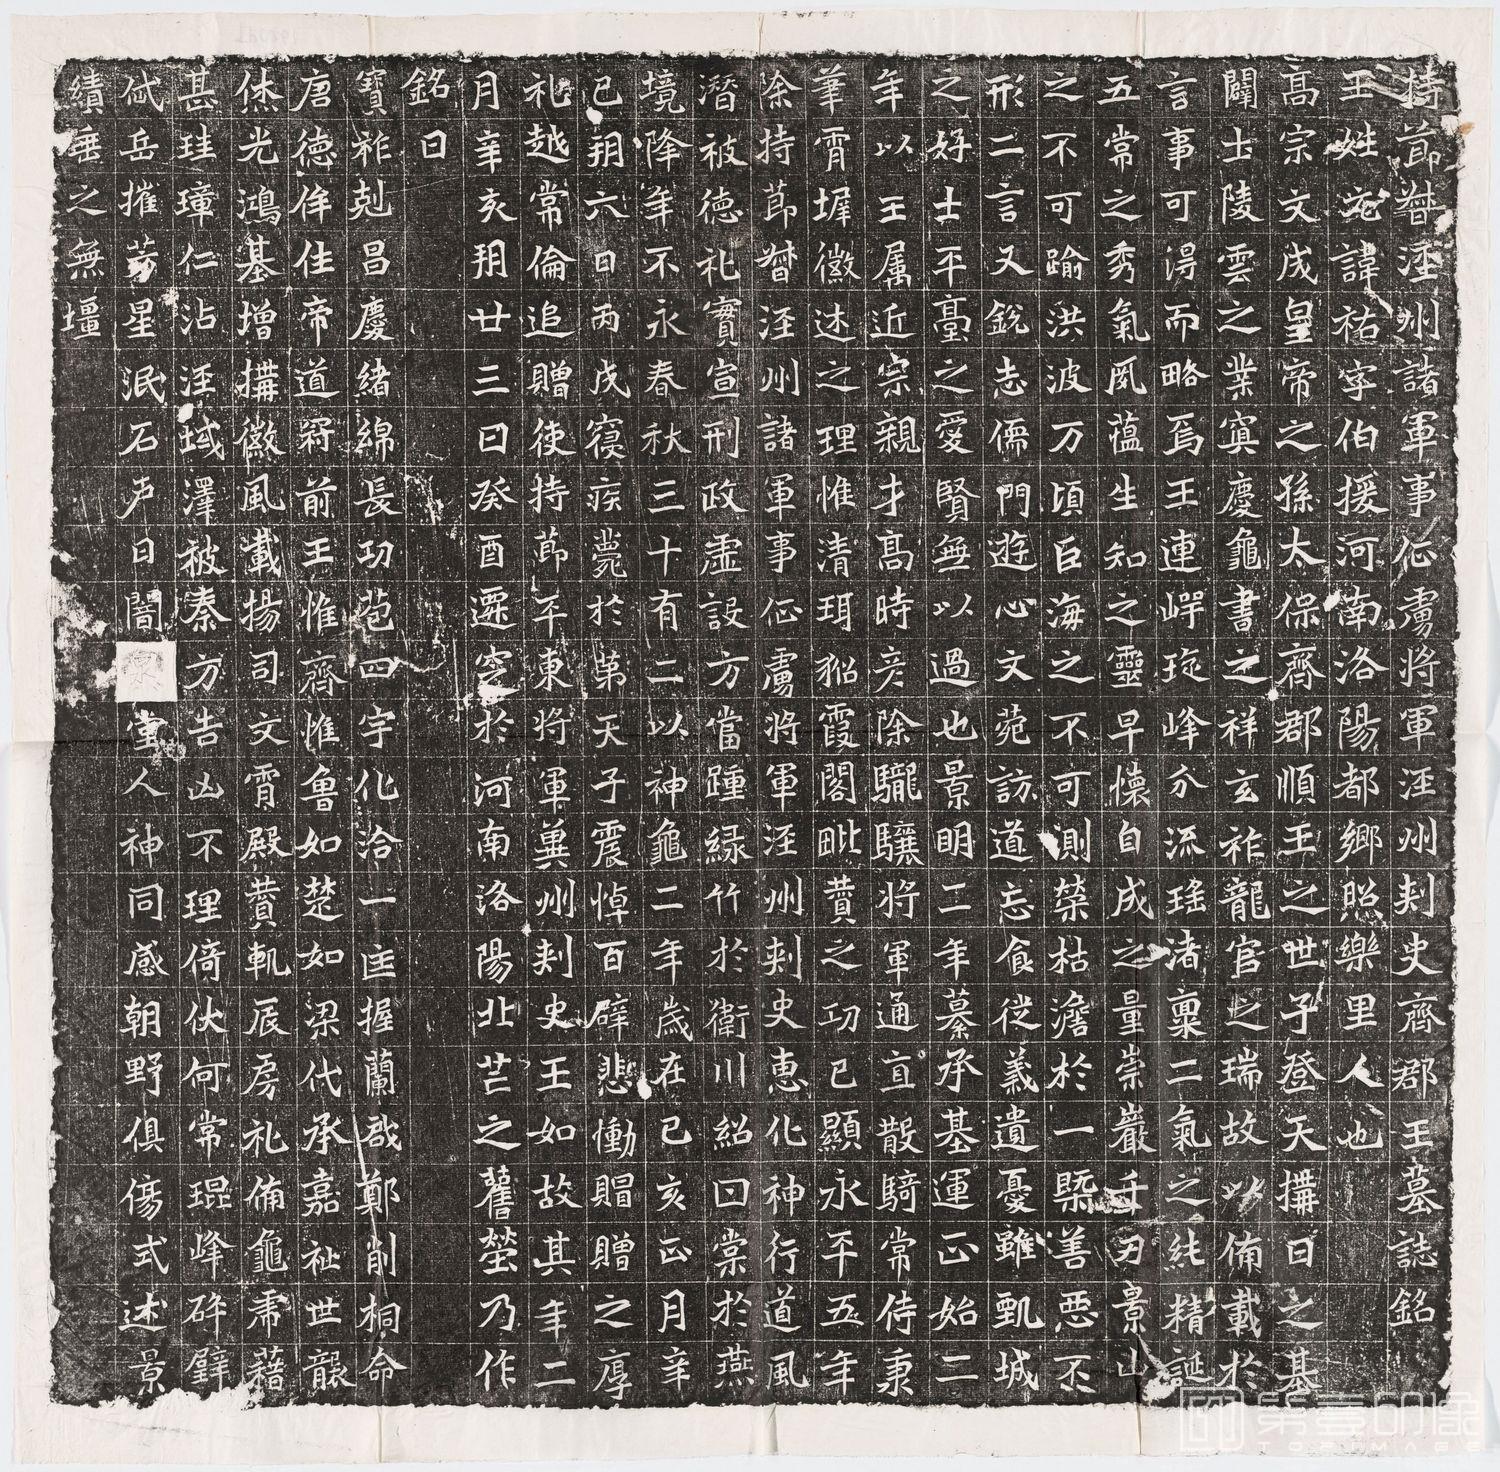 持節督涇州諸軍事征虜將軍涇州刾史齊郡王墓誌銘
王姓元諱祐字伯援河南洛陽都鄉照樂里人也
高宗文成皇帝之孫太保齊郡順王之世子登天搆日之基
闢士陵雲之業寘慶龜書之祥玄祚龍官之瑞故以俻載於
言事可淂而略焉王連嶧琁峰分流瑤渚稟二氣之純精誕
五常之秀氣夙藴生知之靈早懷自成之量崇巖千刃景山
之不可踰洪波万頃巨海之不可測榮枯澹於一槩善惡丕
形二言又銳志儒門遊心文苑訪道忘食從義遺憂雖甄城
之好士平臺之愛賢無以過也景明二年纂承基運正始二
年以王属近宗親才高時彦除驪驤將軍通直散騎常侍秉
筆霄墀徽述之理惟清珥貂霞閣毗賛之功已顯永平五年
除持節督涇州諸軍事征虜將軍涇州刾史惠化神行道風
潛被德礼實宣刑政虛設方當踵緑竹於衛川紹日棠於燕
境降年不永春秋三十有二以神龜二年歲在己亥正月辛
巳朔六日丙戌寑疾薨於苐天子震悼百辟悲慟賵贈之厚
礼越常倫追贈使持節平東將軍冀州刾史王如故其年二
月辛亥朔廿三日癸酉遷窆於河南洛陽北芒之舊塋乃作
銘曰
寶祚剋昌慶緒綿長功苞四宇化洽一匡握蘭啟鄭削桐命
唐德侔仕帝道冠前王惟齊惟魯如楚如梁代承嘉祉世襲
休光鴻基增搆徽風載揚司文霄殿賛軌辰房礼俻龜䋲藉
甚珪璋仁沾涇域澤被秦方告凶不理倚伏何常琨峰碎璧
㢤岳摧芳星泯石戶日闇泉堂人神同感朝野俱傷式述景
績垂之無壃
第壹印象
TOPIMAGE